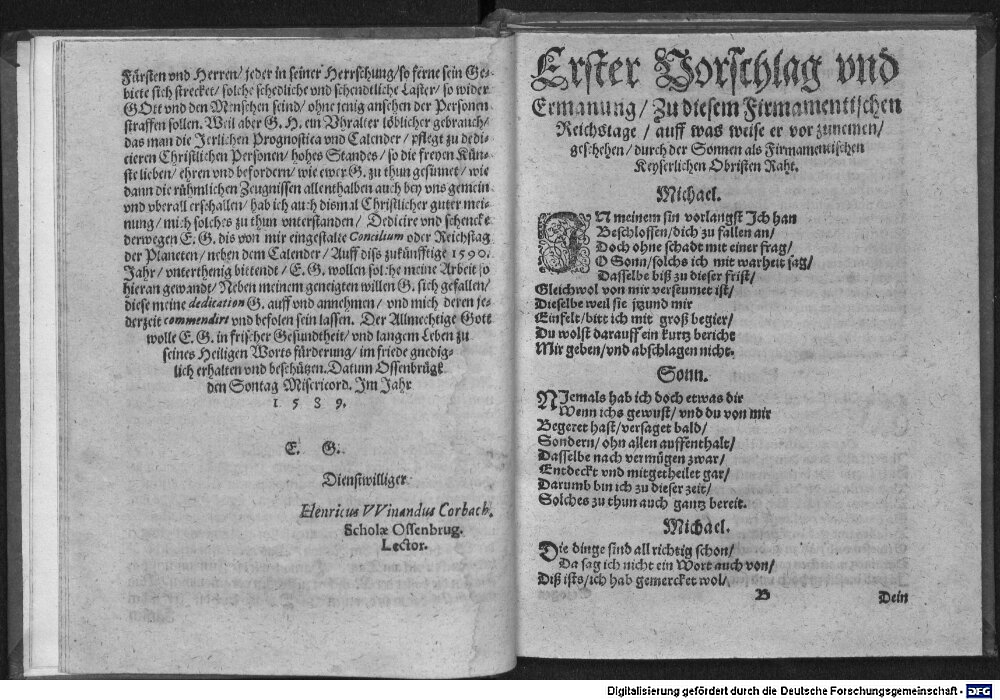 Fürsten vnd Herren/ jeder in seiner Herrschung/ so ferne sein Ge-
biete sich strecket/ solche schedliche vnd schendtliche Laster/ so wider
GOtt vnd den Menschen seind/ ohne jenig ansehen der Personen
straffen sollen. Weil aber G. H. ein Vhralter löblicher gebrauch/
das man die Jerlichen Prognostica vnd Calender/ pflegt zu dedi-
cieren Christlichen Personen/ hohes Standes/ so die freyen Kün-
ste lieben/ ehren vnd befordern/ wie ewer G. zu thun gesinnet/ wie
dann die rühmlichen Zeugnissen allenthalben auch bey vns gemein
vnd vberall erschallen/ hab ich auch dismal Christlicher guter mei-
nung/ mich solches zu thun vnterstanden/ Dedicire vnd schencke
derwegen E. G. dis von mir eingestalte Concilium oder Reichstag
der Planeten/ neben dem Calender/ Auff diss zukünfftige 1590.
Jahr/ vnterthenig bittendt/ E. G. wollen solche meine Arbeit so
hieran gewandt/ Neben meinem geneigten willen G. sich gefallen/
diese meine dedication G. auff vnd annehmen/ vnd mich deren je-
derzeit commendirt vnd befolen sein lassen. Der Allmechtige Gott
wolle E. G. in frischer Gesundtheit/ vnd langem Leben zu
seines Heiligen Worts fürderung/ im friede gnedig-
lich erhalten vnd beschützen. Datum Ossenbrügk
den Sontag Misericord. Im Jahr
1 5 8 9.
E. G.
Dienstwilliger
Henricus VVinandus Corbach.
Scholæ Ossenbrug.
Lector.
Erster Vorschlag vnd
Ermanung/ Zu diesem Firmamentischen
Reichstage/ auff was weise er vorzunemen/
geschehen/ durch der Sonnen als Firmamentischen
Keyserlichen Obristen Raht.
Michael.
IN meinem sin vorlangst Ich han
Beschlossen/ dich zu fallen an/
Doch ohne schadt mit einer frag/
O Sonn/ solchs ich mit warheit sag/
Dasselbe biß zu dieser frist/
Gleichwol von mir verseumet ist/
Dieselbe weil sie jtzund mir
Einfelt/ bitt ich mit groß begier/
Du wolst darauff ein kurtz bericht
Mir geben/ vnd abschlagen nicht.
Sonn.
NIemals hab ich doch etwas dir
Wenn ichs gewust/ vnd du von mir
Begeret hast/ versaget bald/
Sondern/ ohn allen auffenthalt/
Dasselbe nach vermügen zwar/
Entdeckt vnd mitgetheilet gar/
Darumb bin ich zu dieser zeit/
Solches zu thun auch gantz bereit.
Michael.
Die dinge sind all richtig schon/
Da sag ich nicht ein Wort auch von/
Diß ists/ ich hab gemercket wol/
B Dein
Digitalisierung gefördert durch die Deutsche Forschungsgemeinschaft - DFG